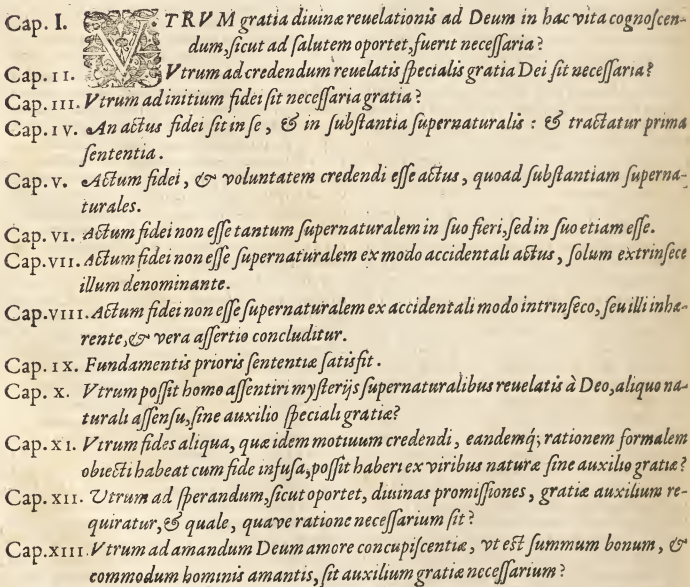 Cap. I. VTRVM gratia diuinæ reuelationis ad Deum in hac vita cognoſcen-
dum, ſicut ad ſalutem oportet, fuerit neceſſaria?
Cap. II. Vtrum ad credendum reuelatis ſpecialis gratia Dei ſit neceſſaria?
Cap. III. Vtrum ad initium fidei ſit neceſſaria gratia?
Cap. IV. An actus fidei ſit in ſe, & in ſubſtantia ſupernaturalis: & tractatur prima
ſententia.
Cap. V. Actum fidei, & voluntatem credendi eſſe actus, quoad ſubſtantiam ſuperna-
turales.
Cap. VI. Actum fidei non eſſe tantum ſupernaturalem in ſuo fieri, ſed in ſuo etiam eſſe.
Cap. VII. Actum fidei non eſſe ſupernaturalem ex modo accidentali actus, ſolum extrinſece
illum denominante.
Cap. VIII. Actum fidei non eſſe ſupernaturalem ex accidentali modo intrinſeco, ſeu illi inhæ-
rente, & vera aſſertio concluditur.
Cap. IX. Fundamentis prioris ſententiæ ſatisfit.
Cap. X. Vtrum poſſit homo aſſentiri myſterijs ſupernaturalibus reuelatis à Deo, aliquo na-
turali aſſenſu, ſine auxilio ſpeciali gratiæ?
Cap. XI. Vtrum fides aliqua, quæ idem motiuum credendi, eandemq; rationem formalem
obiecti habeat cum fide infuſa, poſſit haberi ex viribus naturæ ſine auxilio gratiæ?
Cap. XII. Vtrum ad ſperandum, ſicut oportet, diuinas promiſſiones, gratiæ auxilium re-
quiratur, & quale, quave ratione neceſſarium ſit?
Cap. XIII. Vtrum ad amandum Deum amore concupiſcentiæ, vt eſt ſummum bonum, &
commodum hominis amantis, ſit auxilium gratiæ neceſſarium?